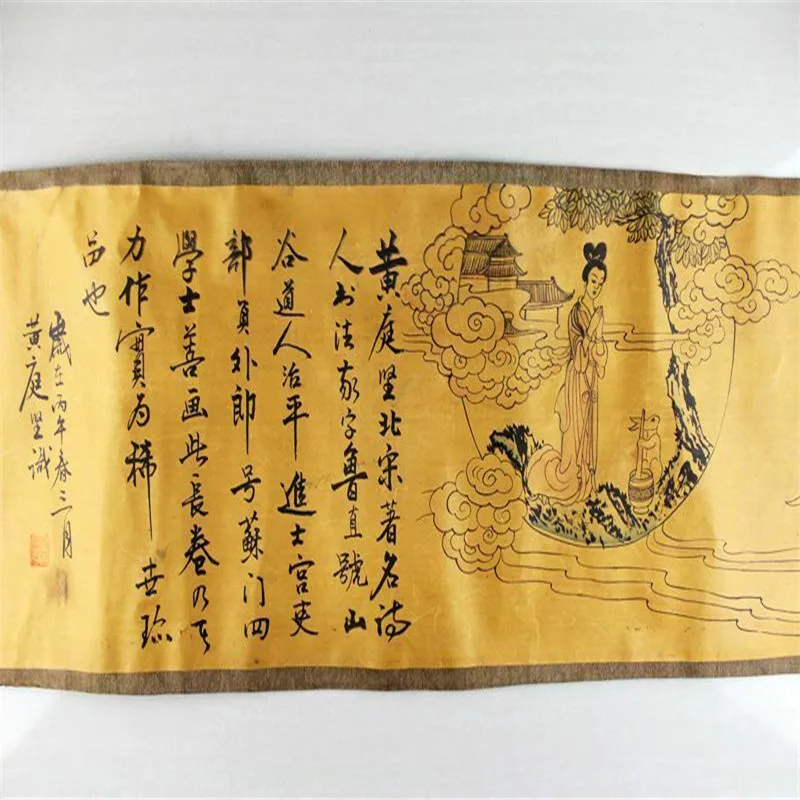 黄庭坚北宋著名诗
人书法家字鲁直號山
谷道人治平進士官吏
部員外郎号蘇门四
學士善画此長卷乃其
力作實为稀世珎
品也
歲在丙午春三月
黄庭坚識